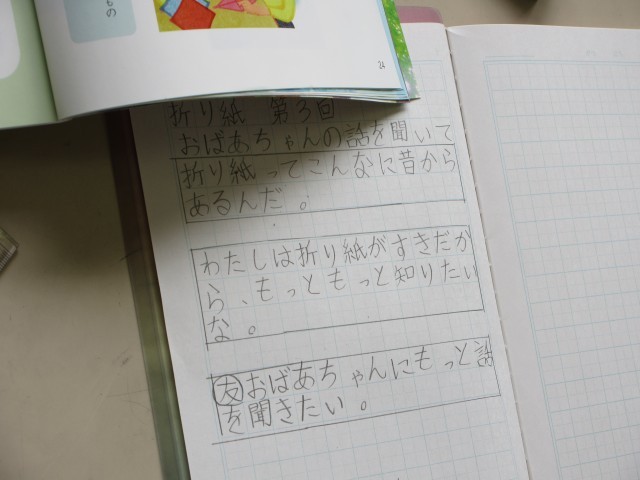 もの
24
折り紙 第3回
おばあちゃんの話を聞いて
折り紙ってこんなに昔から
あるんだ。
わたしは折り紙がすきだか
ら、もっともっと知りたい
な。
友おばあちゃんにもっと話
を聞きたい。